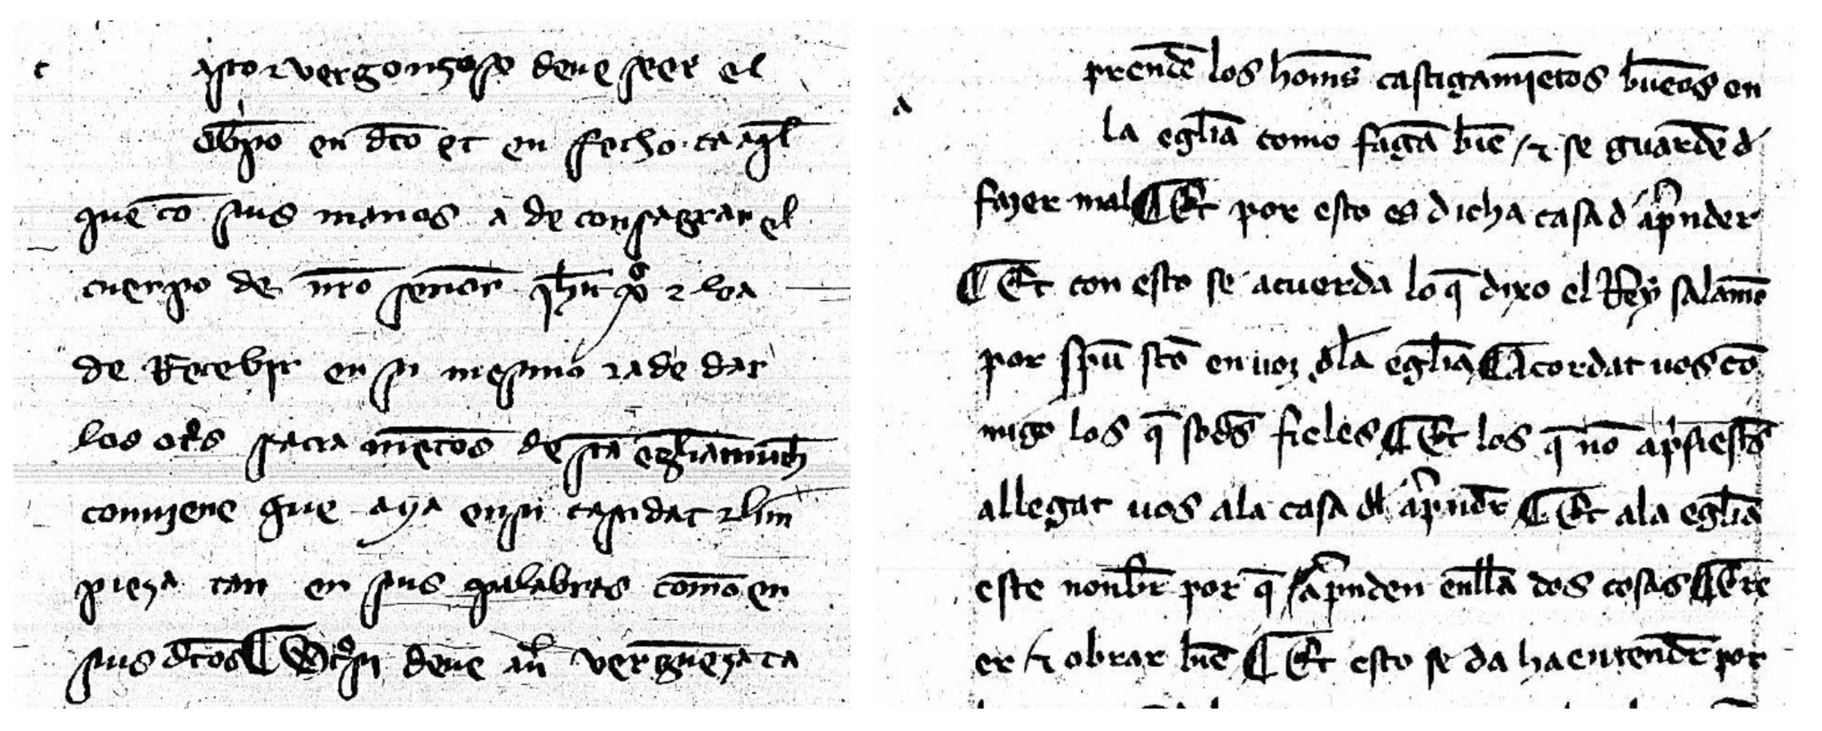 c
asto ⁊ vergonçoso deue seer el
obp̃o en dc̃o et en fecho. ca aq̃l
que cō sus manos a de consagrar el
cuerpo de nr̃o señor ih̃u xp̃o ⁊ loa
de Reccebir en si mesmo ⁊ a de dar
los otr̃s sacramẽtos de sc̃a egl̃ia mucħ
conujene que aya en si castidat ⁊ lim
pieza tan en sus palabras como en
sus dc̃os ¶ Otͦsi deue auer̃ verguẽza ca
a
prende los hom̃s castigamiẽtos buẽos en
la egl̃ia como fagã biẽ / ⁊ se guardẽ d̉
fazer mal ¶ Et por esto es dicha casa d̉ ap̃nder
¶ Et con esto se acuerda lo q̃ dixo el Rey salamõ
por sp̃u sc̃o en uoz dl̃a egl̃ia ¶ Acordat uos cõ
migo los q̃ sodes̃ fieles ¶ Et los q̃ nõ ap̃siest̃s
allegat uos ala casa dl̃ ap̃ndr̃ ¶ Et ala egl̃ia
este nonbr̃ por q̃ ap̃nden enll̃a dos cosas ¶ Cre
er ⁊ obrar biẽ ¶ Et esto se da ha entendr̃ por